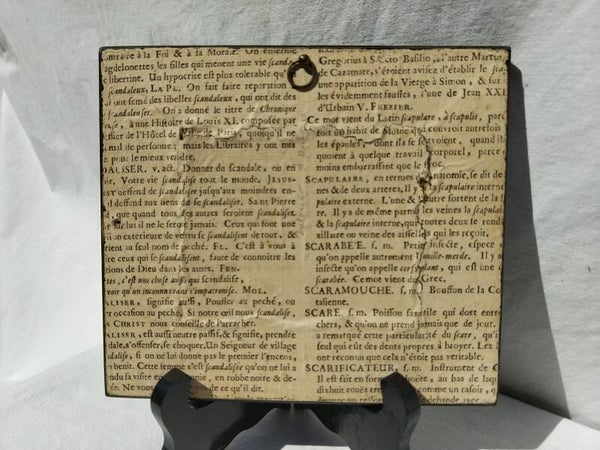 à la Foi & à sa Morale. On enferme
agdelonettes les filles qui menent une vie scanda
libertine. Un hypocrite est plus tolerable qu'
LA PL. On fait faire reparation
ont semé des libelles scandaleux, qui ont dit des
On a donné le titre de Chronique
à une Histoire de Louis XI. composée par
fier de l'Hôtel de Ville de Paris, quoiqu'il ne
mal de personne; mais les Libraires y ont mis
pour le mieux vendre.
DALISER. v. act. Donner du scandale, ou en
Votre vie scandalise tout le monde. JESUS-
deffend de scandaliser jusqu'aux moindres en-
deffend aux siens de se scandaliser. Saint Pierre
que quand tous les autres seroient scandalisez
lui il ne le seroit jamais. Ceux qui font une
exterieure de vertu se scandalisent de tout, &
au seul nom de peché. FL. C'est à vous à
ceux qui se scandalisent, faute de connoître les
tions de Dieu dans les ames. FEN.
c'est une chose aussi qui scandalise,
voir qu'un inconnu céans s'impatronise. MOL.
ALISER, signifie aussi, Pousser au peché, ou
occasion au peché. Si notre œil nous scandalise,
CHRIST nous conseille de l'arracher.
ALISER, est aussi neutre passif, & signifie, prendre
s'offenser, se choquer. Un Seigneur de village
si on ne lui donne pas le premier l'encens,
benit. Cette femme s'est scandalisée qu'on ne lui a
sa visite en robbe noire & de-
Ne vous de ce qu'il dit.
Gregorius à Sancto Basilio, à l'autre Martur
de Cazamate, s'étoient avisez d'établir le
une apparition de la Vierge à Simon, & sur
les évidemment fausses, l'une de Jean XXI
d'Urbain V.
Ce mot vient du Latin scapulare, à scapulis, parce
toit un habit de Moine qui couvroit autrefois
les épaules, dont ils se servoient, quand ils
quoient à quelque travail corporel, parce
moins embarrassant que le froc.
SCAPULAIRE, en termes d'Anatomie, se dit de
nes & de deux arteres, Il y a la scapulaire interne
pulaire externe. L'une & l'autre sortent de la
re. Il y a de même parmi les veines la scapulaire
& la scapulaire interne, qui toutes deux rentrent
xillaire ou veine des aisselles qui les reçoit.
SCARABE'E. s. m. Petit insecte, espece
qu'on appelle autrement fouille-merde. Il y a
insecte qu'on appelle cerf volant, qui est une
scarabée. Ce mot vient du Grec.
SCARAMOUCHE. s. m. Bouffon de la Co
talienne.
SCARE. s. m. Poisson qui dort entre
chers, & qu'on ne prend jamais que de jour.
a remarqué cette particularité du scare, qu'
seul qui eût des dents propres à broyer. Les
ont reconnu que cela n'étoit pas veritable.
SCARIFICATEUR. s. m. Instrument de
Il est fait en forme de boëte, au bas de laqu
dix huit rouës comme un rasoir,